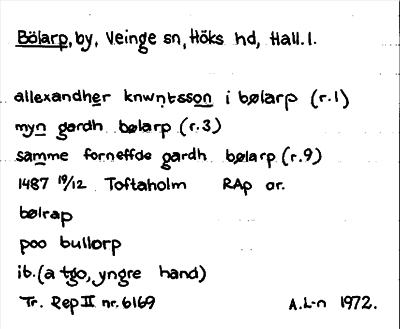 Bölarp, by, Veinge sn, Höks hd, Hall. l.
allexandher knwntsson i bølarp (r.1)
myn gardh bølarp (r.3)
samme forneffde gardh bølarp (r.9)
1487 19/12 Toftaholm RAp or.
bølrap
poo bullorp
ib. (a tgo, yngre hand)
Tr. Rep II nr. 6169 A.L-n 1972.